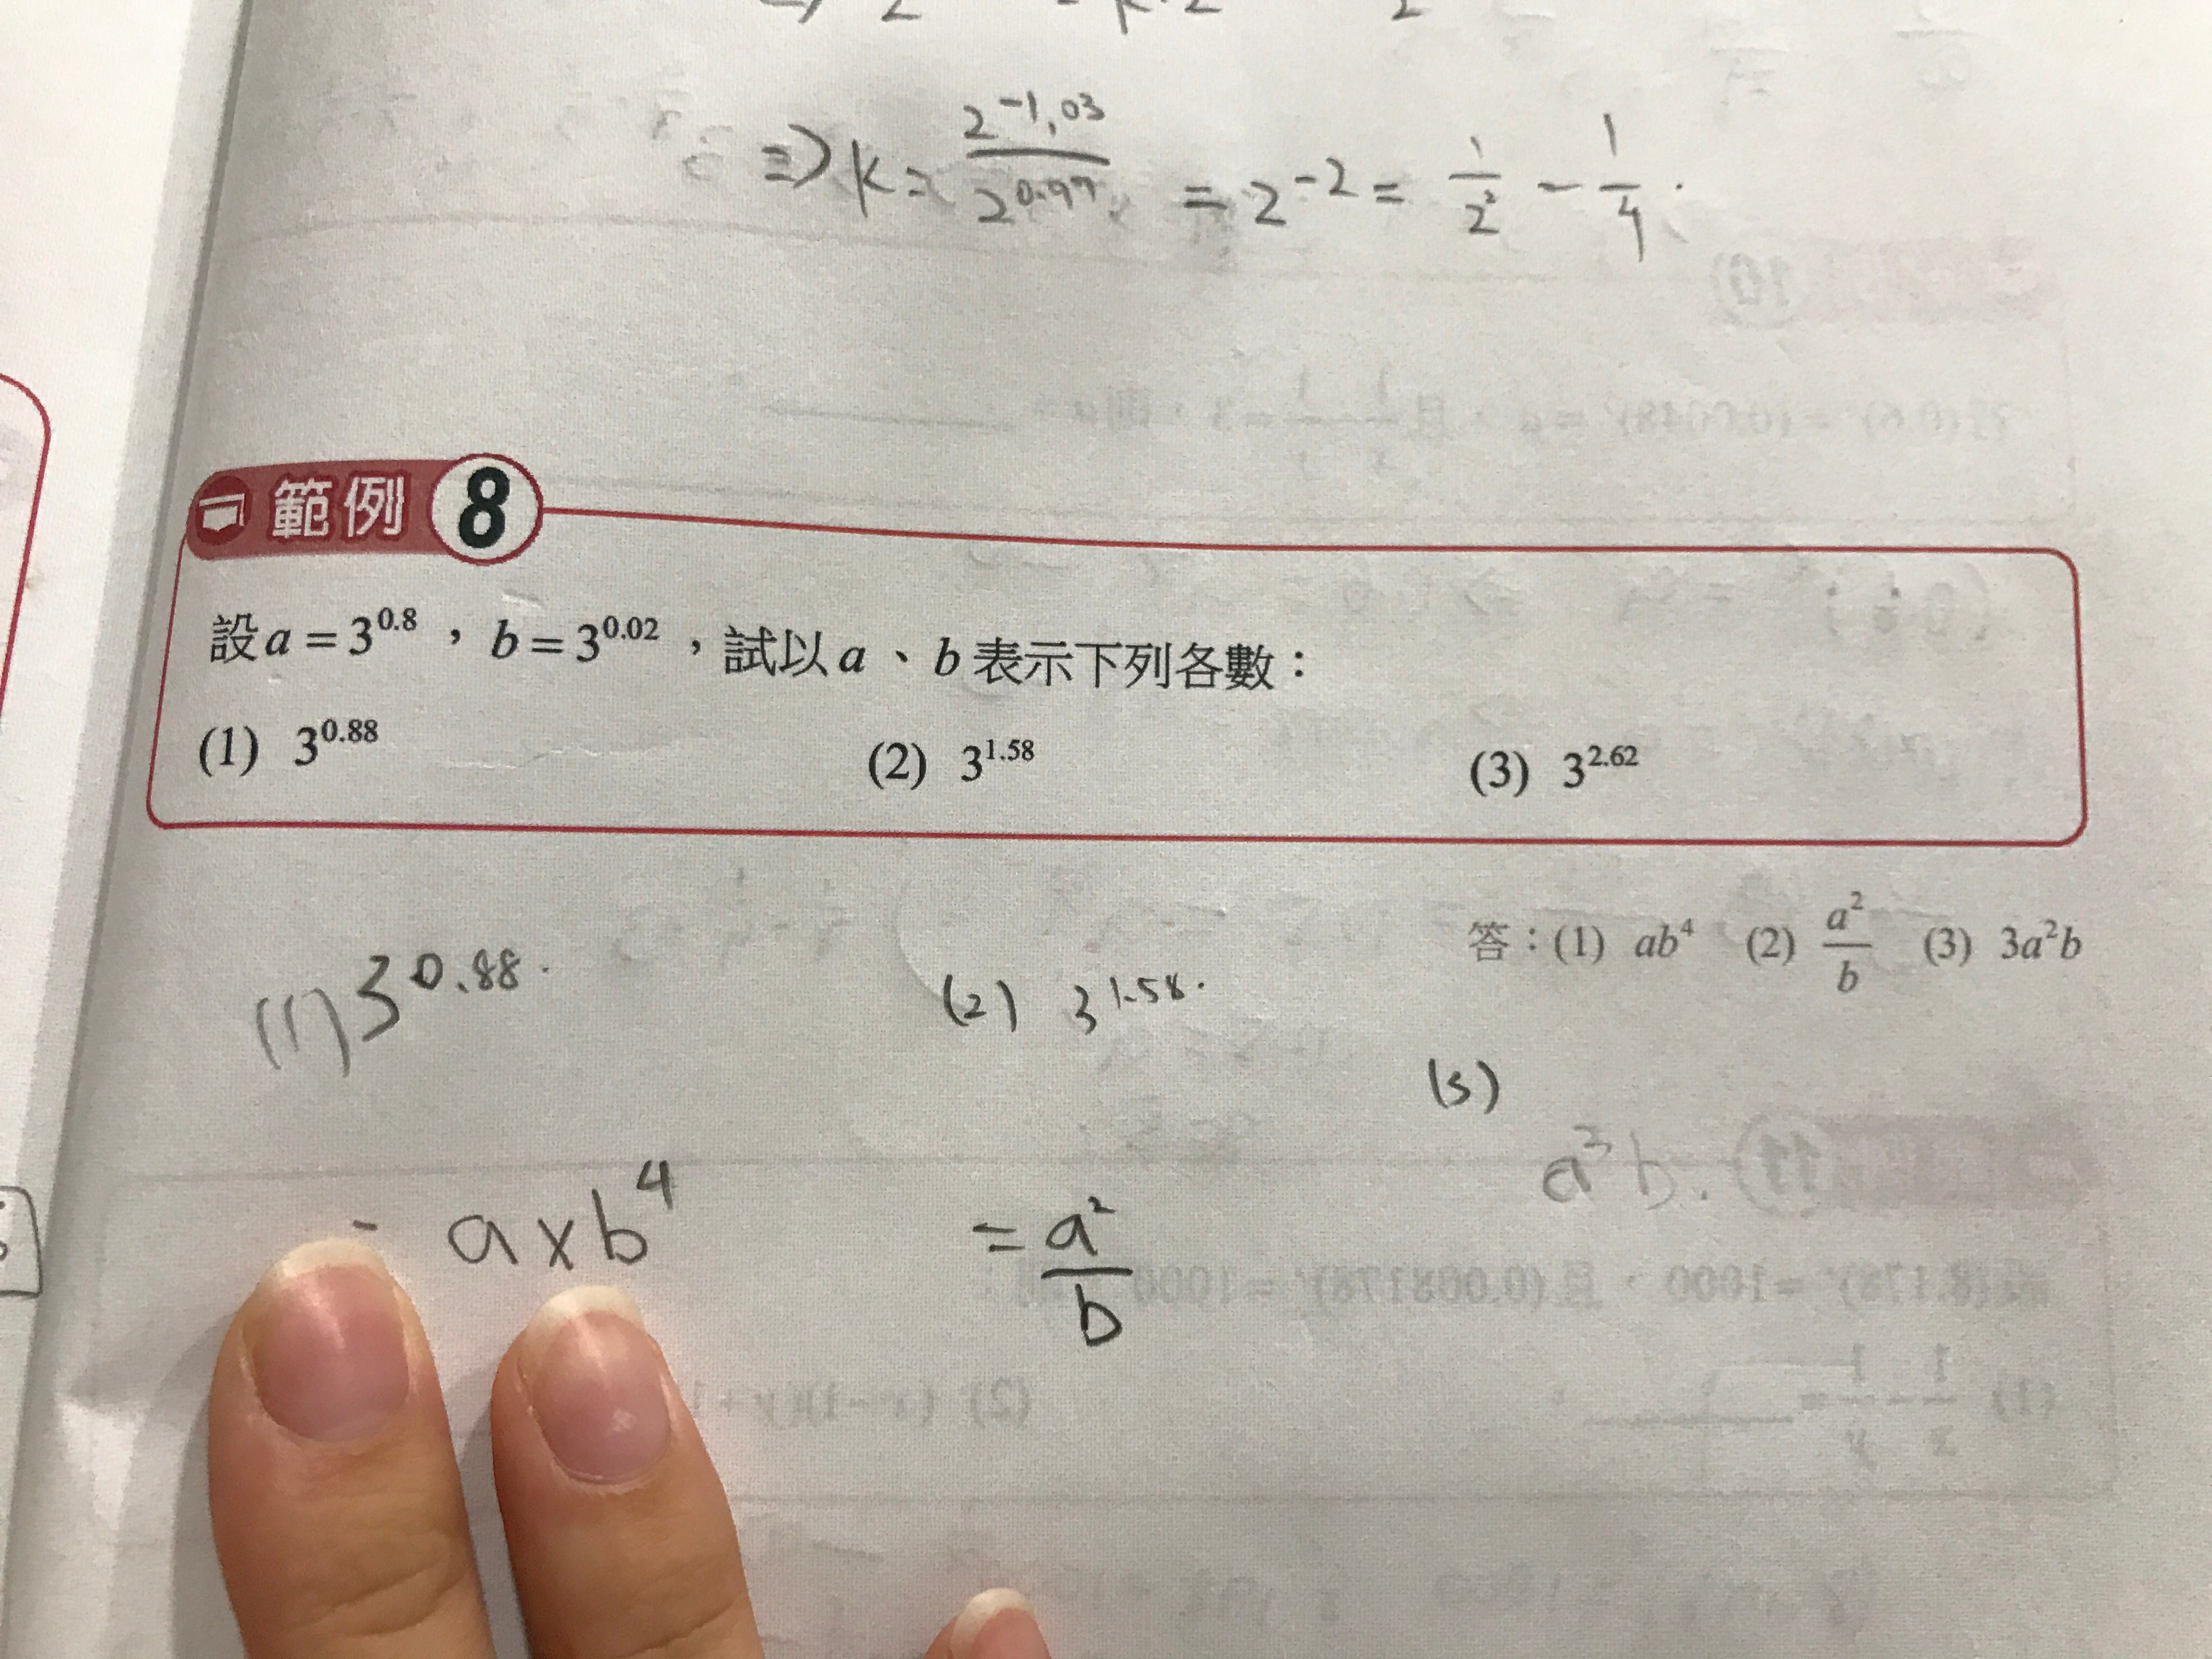 ⇒ k = \frac{2^{-1.03}}{2^{0.97}} = 2^{-2} = \frac{1}{2^2} - \frac{1}{4}.
範例 8
設 a = 3^{0.8} , b = 3^{0.02} , 試以 a 、 b 表示下列各數:
(1) 3^{0.88} (2) 3^{1.58} (3) 3^{2.62}
答:(1) ab^4 (2) \frac{a^2}{b} (3) 3a^2b
(1) 3^{0.88}. (2) 3^{1.58}.
(3)
a^3 b.
= a × b^4 = \frac{a^2}{b}